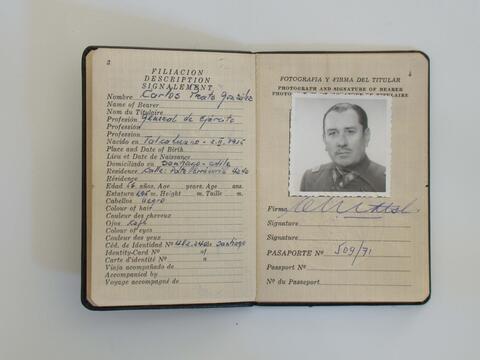 3
FILIACION
DESCRIPTION
SIGNALEMENT
Nombre Carlos Prats González
Name of Bearer
Nom du Titulaire
Profesión General de Ejército
Profession
Profession
Nacido en Talcahuano - 2.II.1915
Place and Date of Birth
Lieu et Date de Naissance
Domiciliado en Santiago - Chile
Residence Calle:
Résidence
Edad 56 años. Age years. Age ans.
Estatura m. Height m. Taille m.
Cabellos negro
Colour of hair
Couleur des cheveux
Ojos café
Colour of eyes
Couleur des yeux
Céd. de Identidad Nº Santiago
Identity-Card Nº of
Carte d'identité Nº
Viaja acompañado de
Accompanied by
Voyage accompagné de
4
FOTOGRAFIA Y FIRMA DEL TITULAR
PHOTOGRAPH AND SIGNATURE OF BEARER
Firma
Signature
Signature
PASAPORTE Nº 509/71
Passport Nº
Nº du Passeport